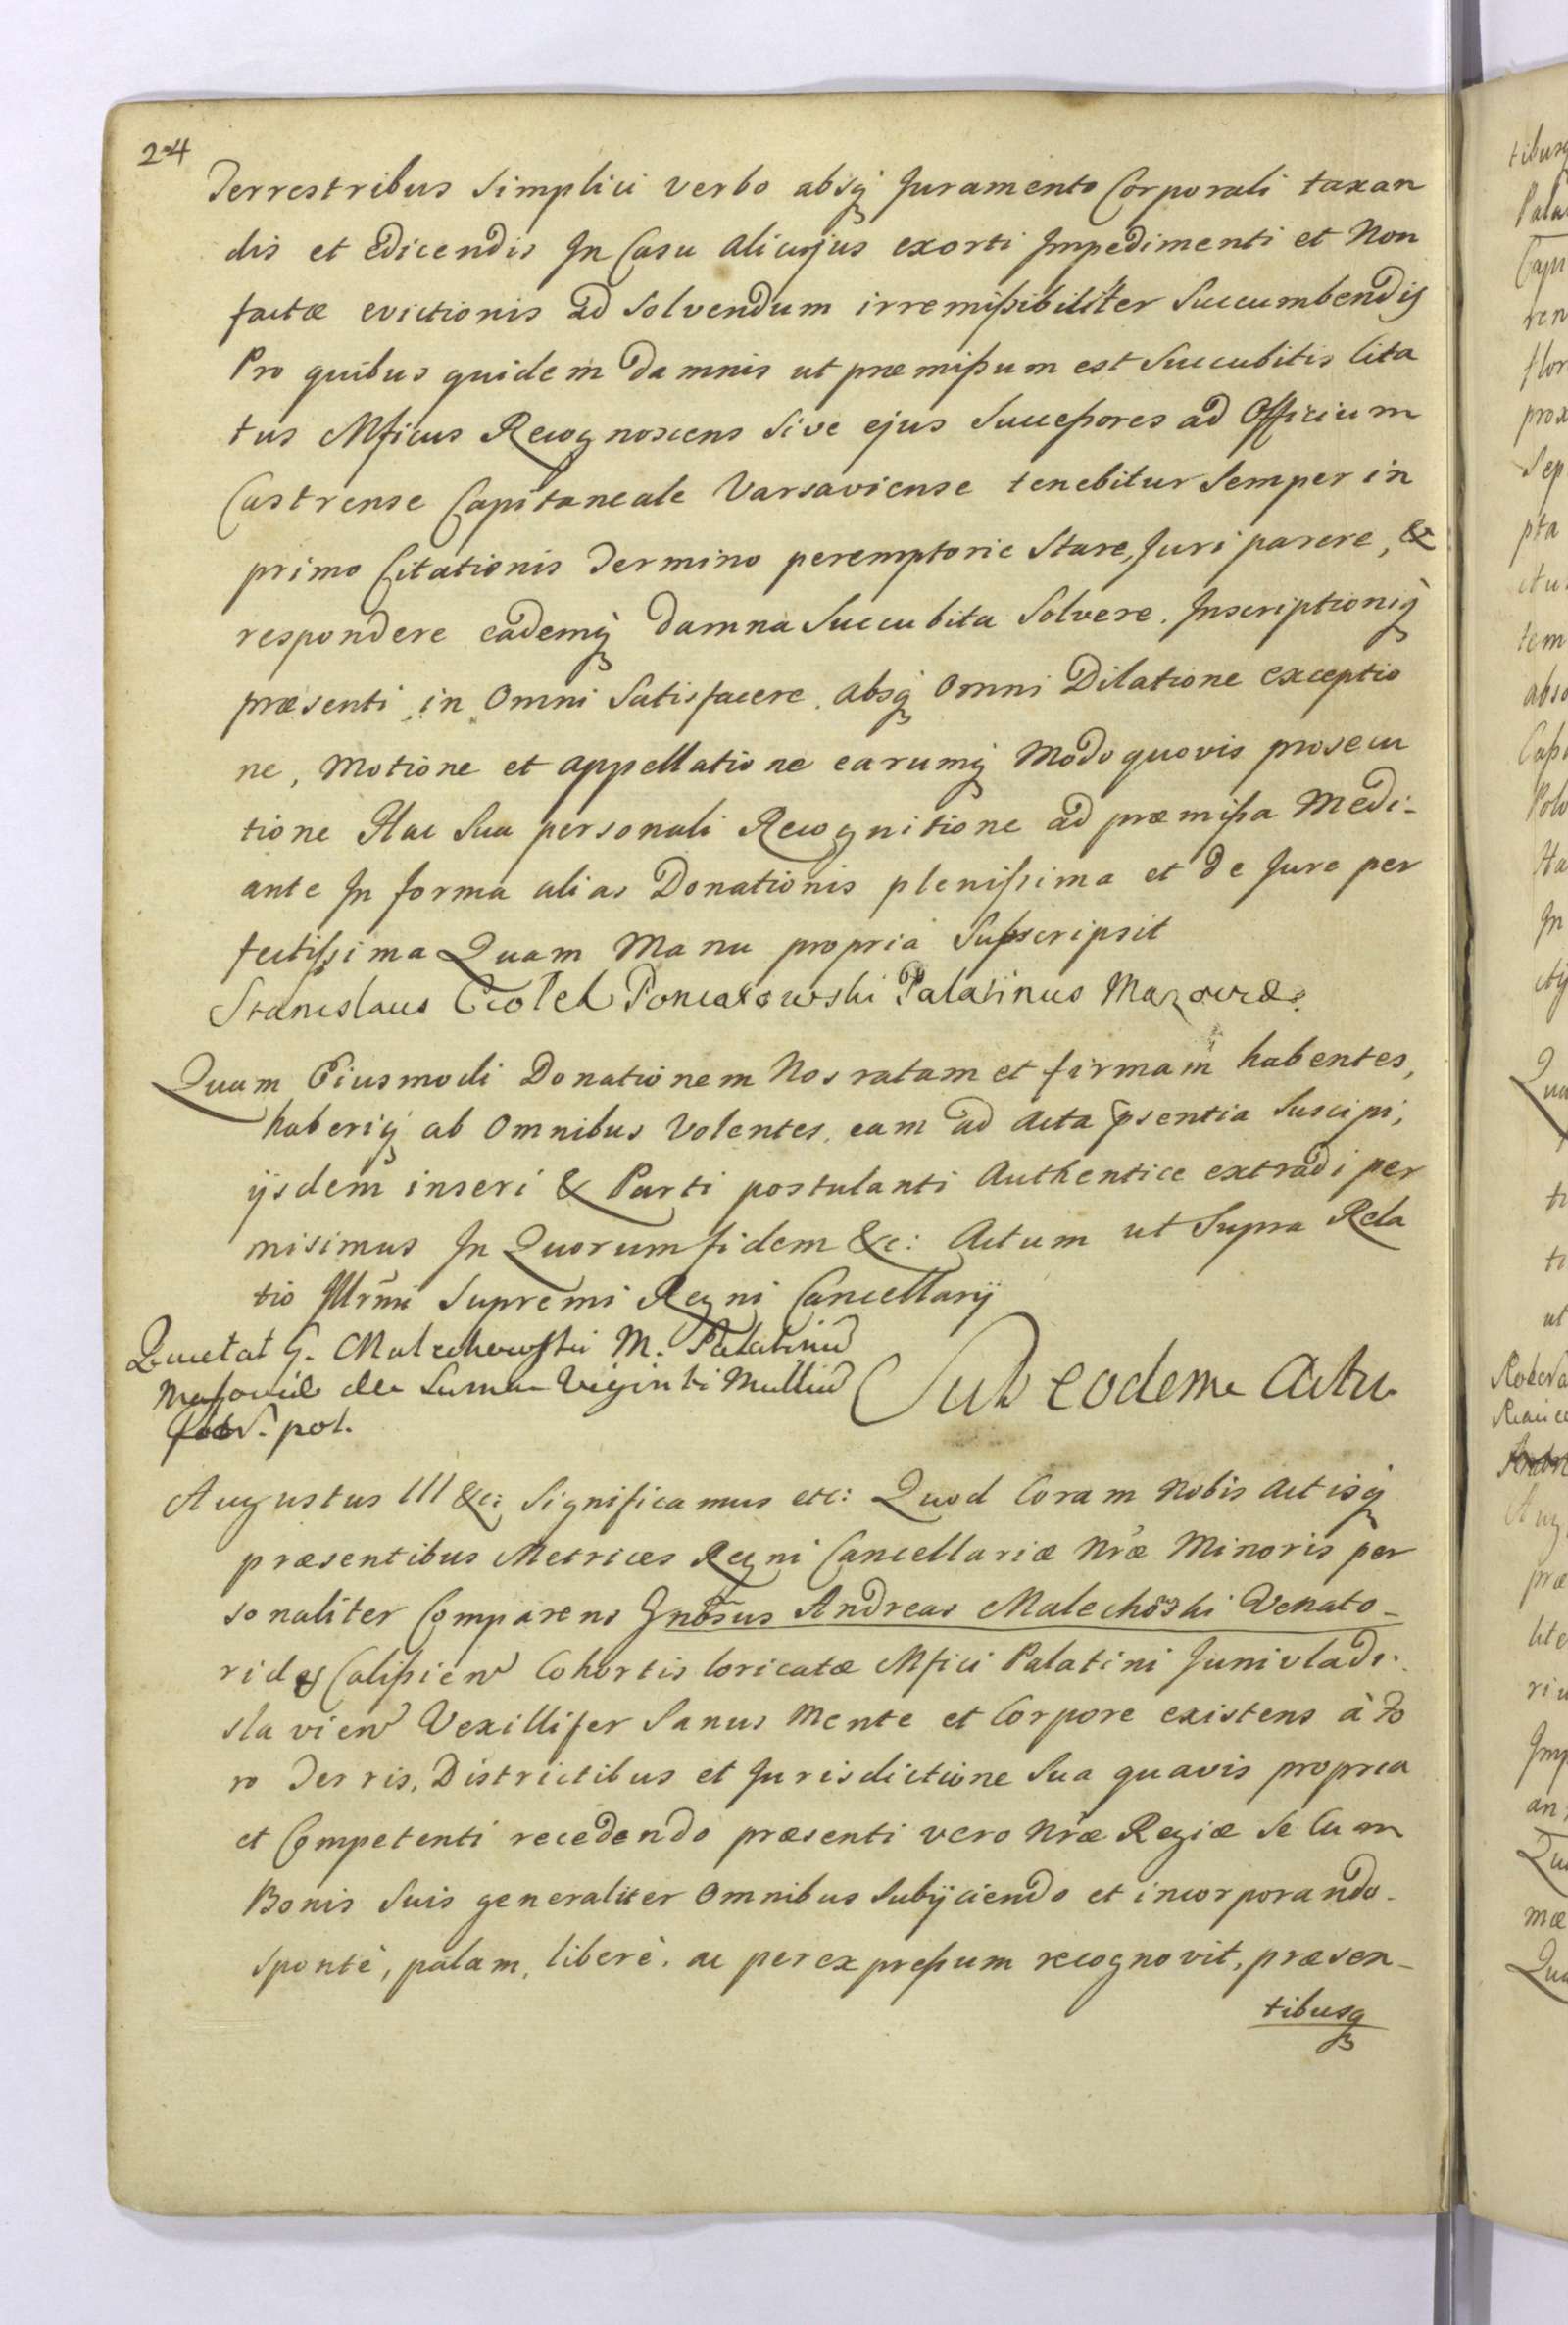 24
Terrestribus simplici verbo absq; Juramento Corporali taxan
dis et edicendis In Casu alicujus exorti Impedimenti et Non
factæ evictionis ad solvendum irremißibiliter Succumbendis
Pro quibus quidem damnis ut præmißum est Succubitis Cita
tus Mficus Recognoscens sive ejus Succeßores ad Officium
Castrense Capitaneale Varsaviense tenebitur semper in
primo Citationis Termino peremptorie Stare, Juri parere, &
respondere eademq; damna Succubita Solvere. Inscriptioniq;
præsenti in Omni Satisfacere. absq; Omni Dilatione exceptio
ne, Motione et appellatione earumq; Modo quovis prosecu
tione Hac Sua personali Recognitione ad præmißa Medi-
ante In forma alias Donationis plenißima et de Jure per
fectißima Quam Manu propria Subscripsit
Stanislaus Ciołek Poniatowski Palatinus Mazoviæ.
Quam Eiusmodi Donationem Nos ratam et firmam habentes,
haberiq; ab Omnibus Volentes, eam ad Acta p̃sentia Suscipi,
ijsdem inseri & Parti postulanti Authentice extradi per
misimus In Quorum fidem &c: Actum ut Supra Rela
tio Illr̃mi Supremi Regni Cancellarij
Quietat G. Malechowski M. Palatinũ
Masoviæ de Suma Viginti Milliũ
flor. pol.
Sub eodem Actu
Augustus III &c: Significamus etc: Quod Coram Nobis Actisq;
præsentibus Metrices Regni Cancellariæ Nr̃æ Minoris per
sonaliter Comparens Gnõsus Andreas Malechõski Venato-
rides Calißien Cohortis loricatæ Mfici Palatini Junivladi-
slavien Vexillifer Sanus Mente et Corpore existens à Fo
ro Terris, Districtibus et Jurisdictione Sua quavis propria
et Competenti recedendo præsenti vero Nr̃æ Regiæ se Cum
Bonis Suis generaliter Omnibus Subijciendo et incorporando.
Spontè, palam, liberè, ac per expreßum recognovit, præsen-
tibusq;